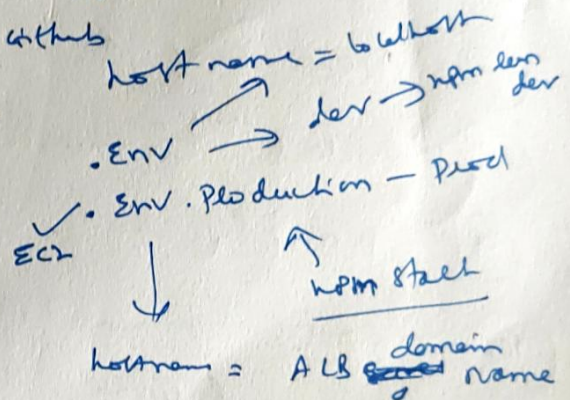 Github
hostname = localhost
dev → npm run dev
.Env
. Env . Production - Prod
EC2
npm start
hostname = ALB domain name